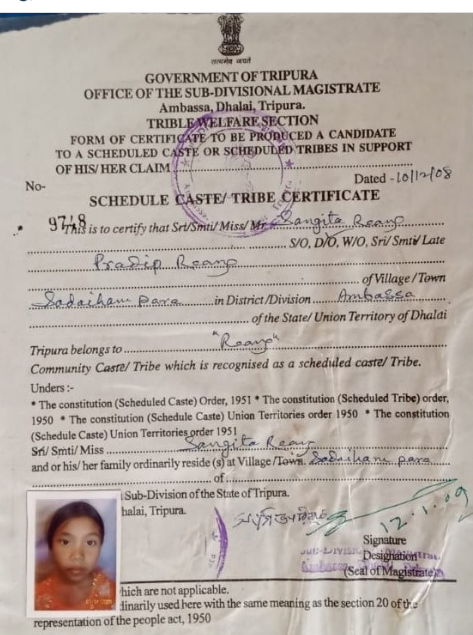 सत्यमेव जयते
GOVERNMENT OF TRIPURA
OFFICE OF THE SUB-DIVISIONAL MAGISTRATE
Ambassa, Dhalai, Tripura.
TRIBLE WELFARE SECTION
FORM OF CERTIFICATE TO BE PRODUCED A CANDIDATE
TO A SCHEDULED CASTE OR SCHEDULED TRIBES IN SUPPORT
OF HIS/HER CLAIM
No- Dated - 10/12/08
SCHEDULE CASTE/ TRIBE CERTIFICATE
9748
This is to certify that Sri/Smti/ Miss/ Mr. Sangita Reang
S/O, D/O, W/O, Sri/ Smti/ Late
Pradip Reang
of Village /Town
Sadaiham para in District /Division Ambassa
of the State/ Union Territory of Dhalai
Tripura belongs to "Reang"
Community Caste/ Tribe which is recognised as a scheduled caste/ Tribe.
Unders :-
* The constitution (Scheduled Caste) Order, 1951 * The constitution (Scheduled Tribe) order,
1950 * The constitution (Schedule Caste) Union Territories order 1950 * The constitution
(Schedule Caste) Union Territories order 1951
Sri/ Smti/ Miss Sangita Reang
and or his/ her family ordinarily reside (s) at Village /Town. Sadaiham para
of
Sub-Division of the State of Tripura.
halai, Tripura.
12.1.09
Signature
Designation
(Seal of Magistrate)
hich are not applicable.
dinarily used here with the same meaning as the section 20 of the
representation of the people act, 1950